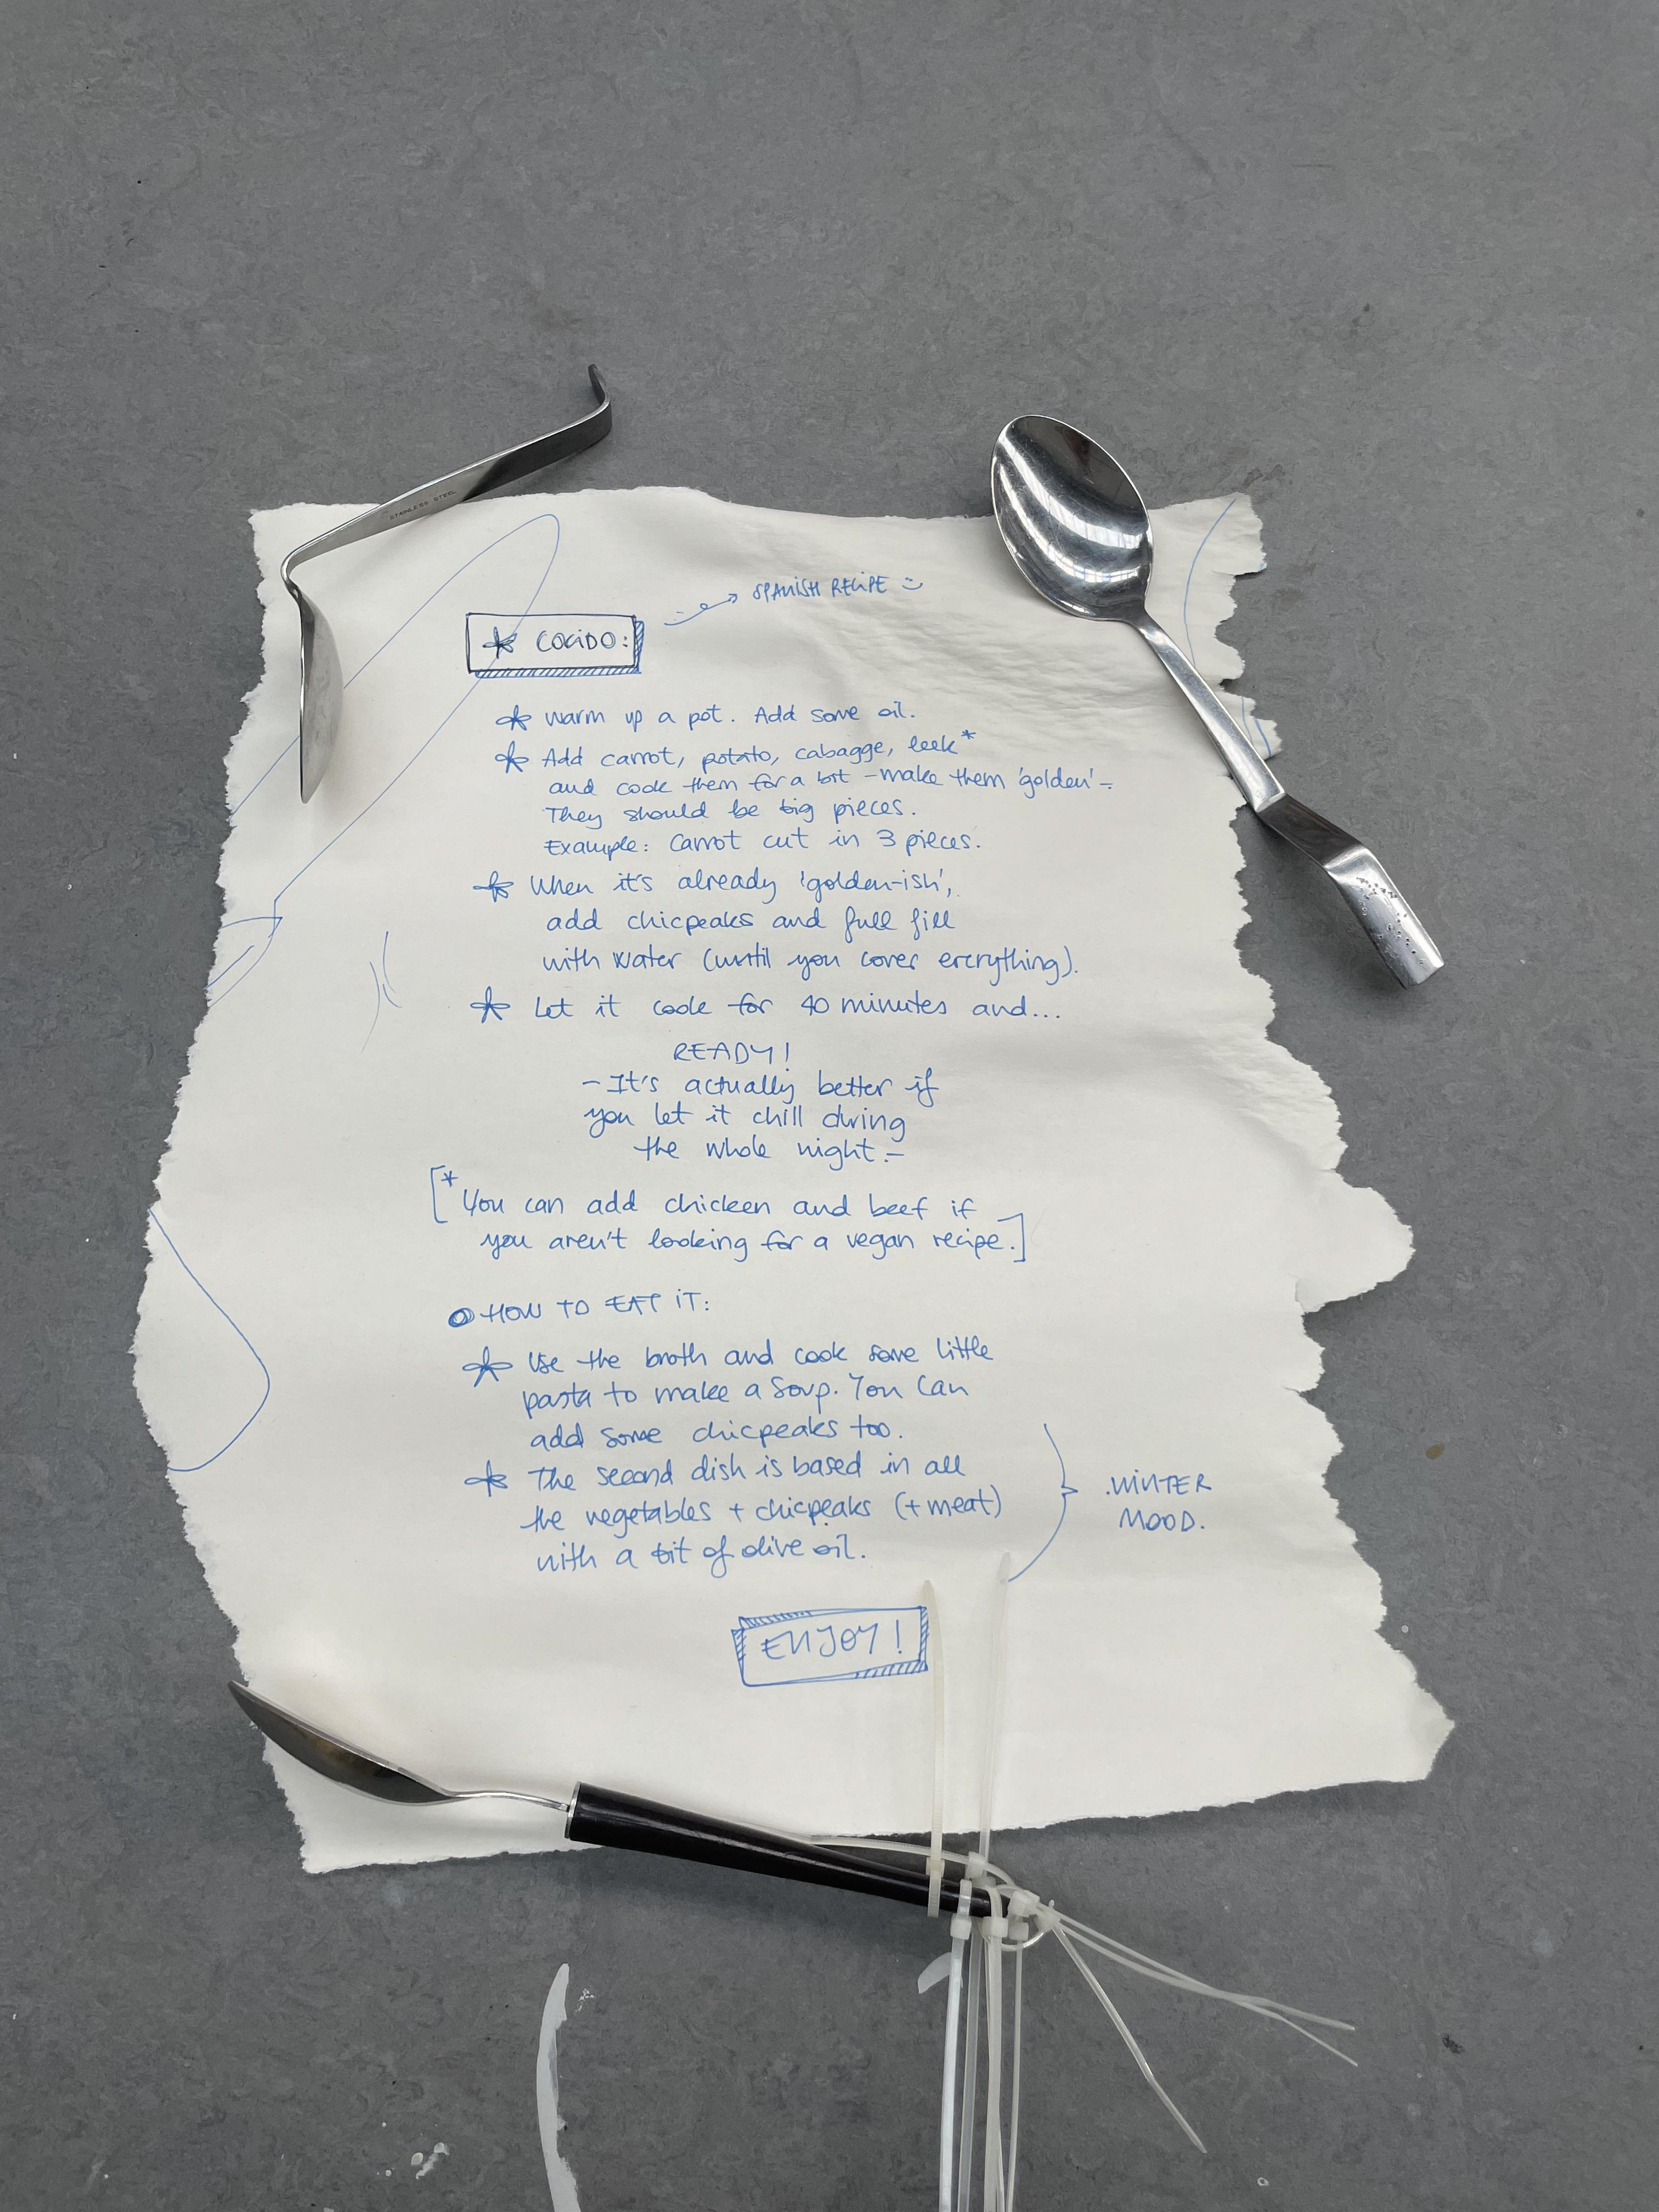 STAINLESS STEEL
SPANISH RECIPE
COCIDO:
warm up a pot. Add some oil.
Add carrot, potato, cabagge, leek*
and cook them for a bit - make them 'golden' -.
They should be big pieces.
Example: Carrot cut in 3 pieces.
When it's already 'golden-ish',
add chicpeaks and full fill
with water (until you cover ererything).
Let it cook for 40 minutes and...
READY!
- It's actually better if
you let it chill during
the whole night. -
[* You can add chicken and beef if
you aren't looking for a vegan recipe.]
HOW TO EAT IT:
Use the broth and cook some little
pasta to make a Soup. You Can
add some chicpeaks too.
The second dish is based in all
the vegetables + chicpeaks (+ meat)
with a bit of olive oil.
.WINTER
MOOD.
ENJOY!